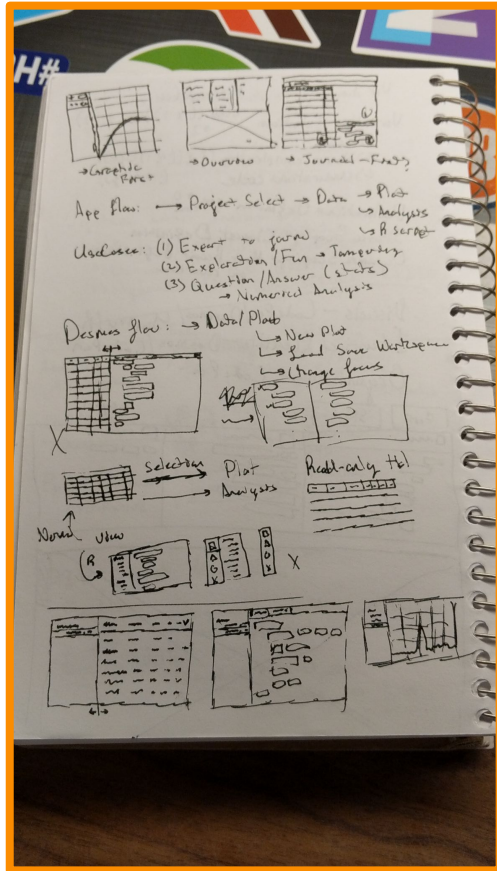 H#
→ Graphic
→ Overview
→ Journal-
App flow: → Project Select → Data → Plot
↳ Analysis
↳ R script
Usecases: (1) Export to journal
(2) Exploration/Fun →
(3) Question/Answer (stats)
→ Numerical Analysis
flow: → Data/Plot
↳ New Plot
↳ Load Save Workspace
↳ Change focus
X
Selection Plot
Analysis
Read-only tbl
view
R
X